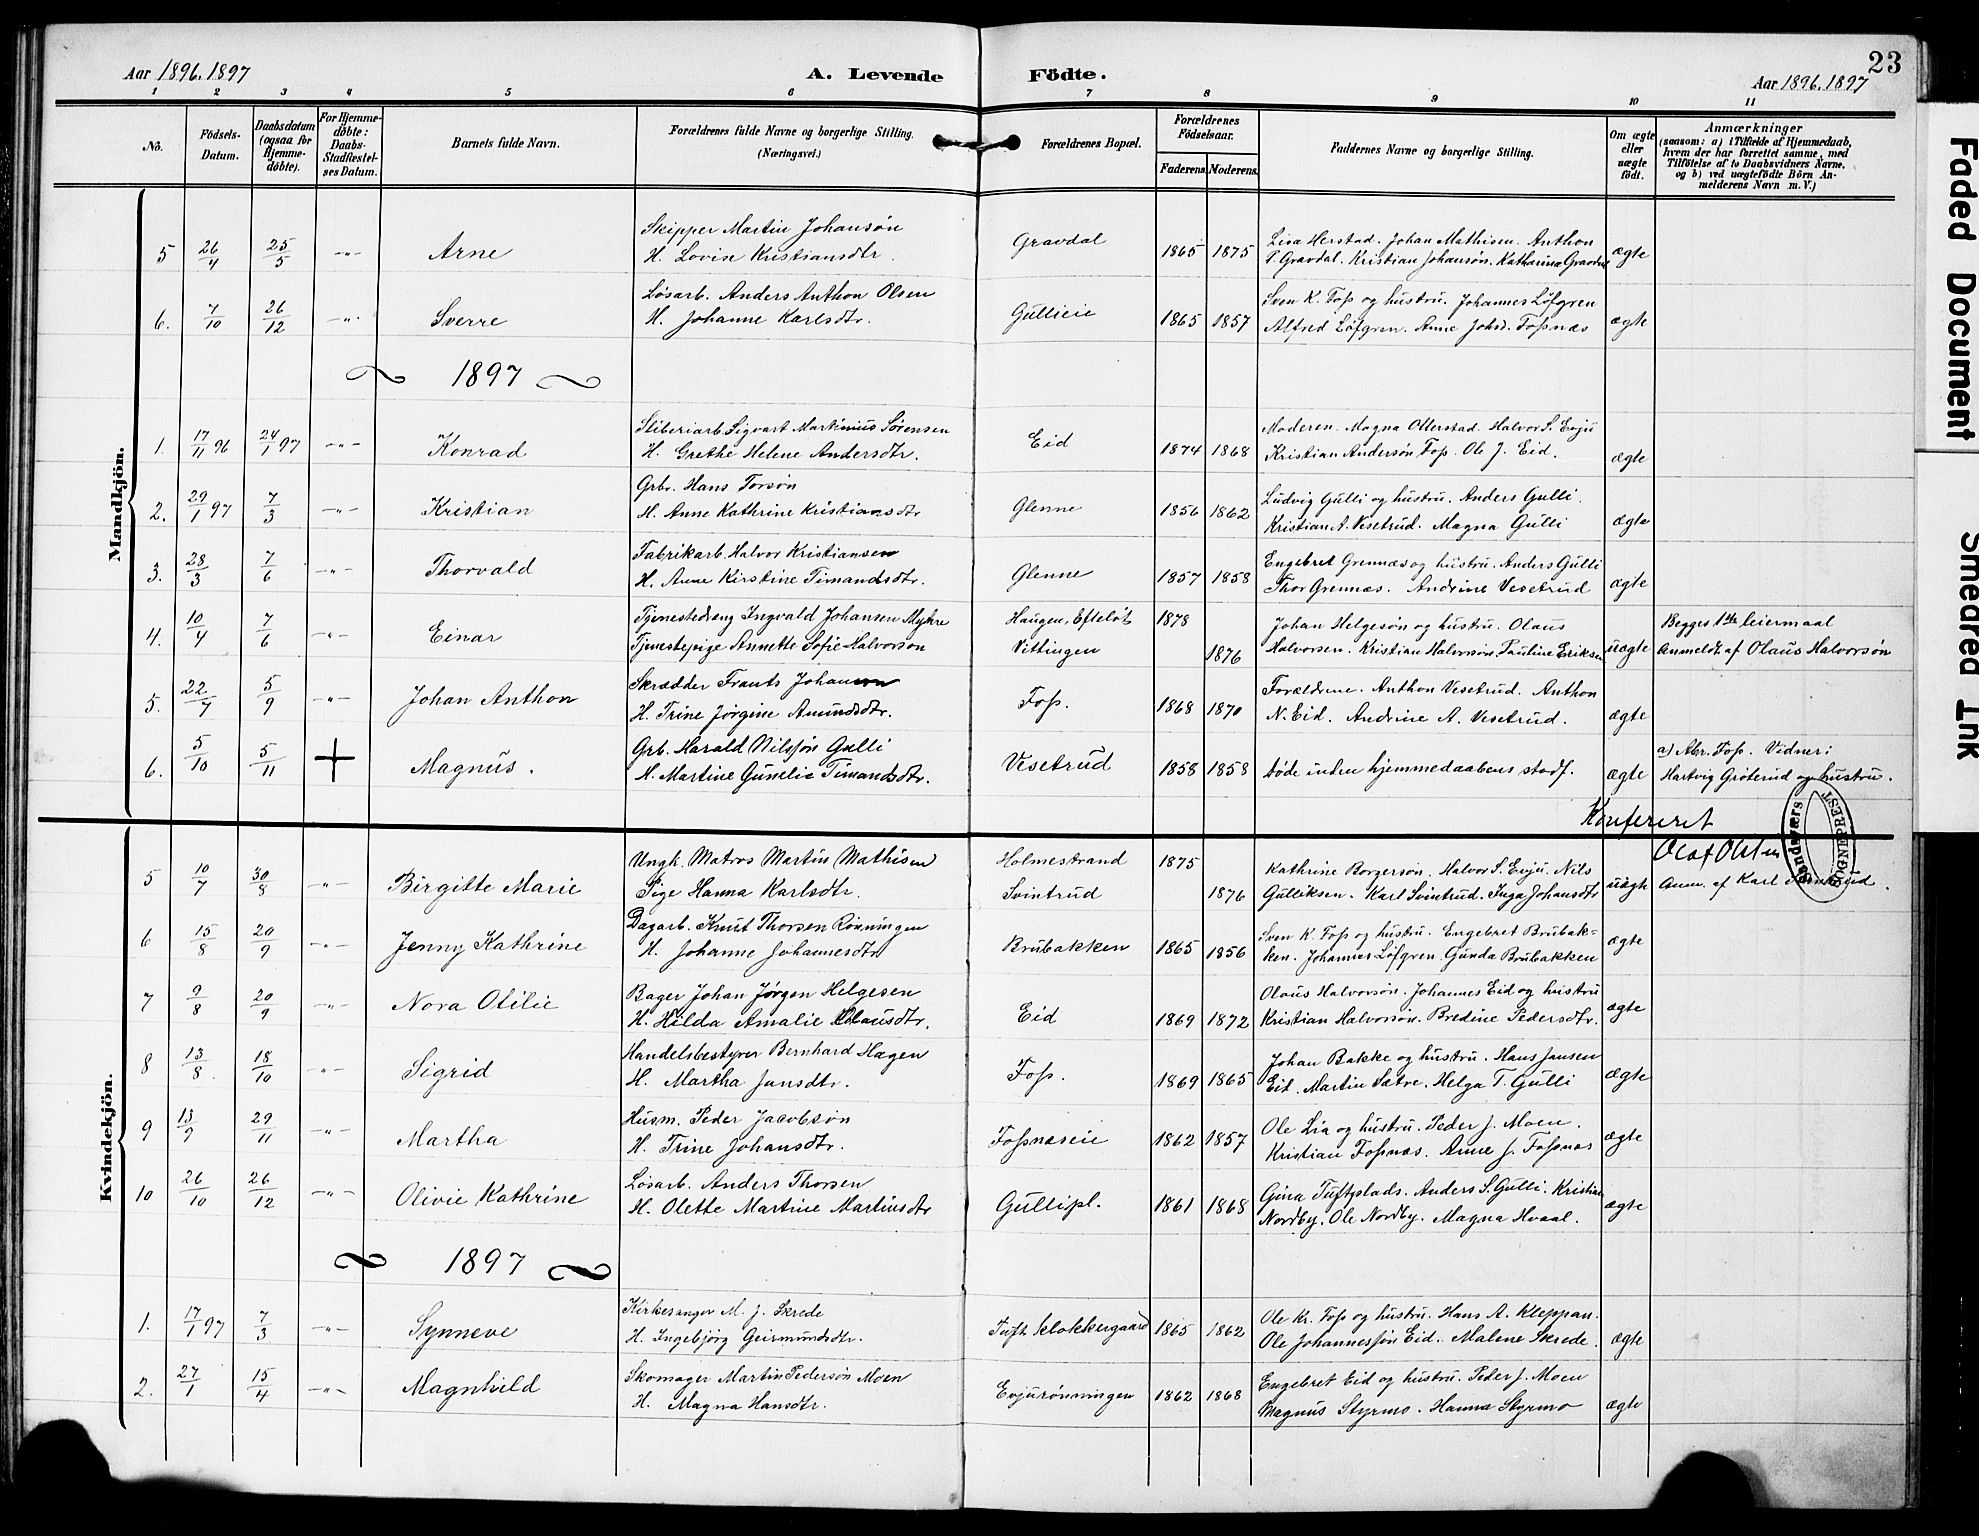 23
Aar 1896.1897 A. Levende Födte. Aar 1896.1897
1 2 3 4 5 6 7 8 9 10 11
No. Födsels-Datum. Daabsdatum (ogsaa for Hjemmedöbte). For Hjemmedöbte: Daabs-Stadfæstelses Datum. Barnets fulde Navn. Forældrenes fulde Navne og borgerlige Stilling. (Næringsvei.) Forældrenes Bopæl. Forældrenes Födselsaar. Faderens Moderens Faddernes Navne og borgerlige Stilling. Om ægte eller uægte födt. Anmærkninger (saasom: a) i Tilfælde af Hjemmedaab, hvem der har forrettet samme, med Tilföielse af to Daabsvidners Navne, og b) ved uægtefödte Börn Anmelderens Navn m. V.)
Mandkjön.
Skipper Martin Johansøn Gravdal Lisa Herstad. Johan Mathisen. Anthon
5 26/4 25/5 -"- Arne H. Lovise Kristiansdtr. 1865 1875 T. Gravdal. Kristian Johansøn. Katharina Gravdal ægte
Løsarb. Anders Anthon Olsen Gullieie Sven K. Foss og hustru. Johannes Løfgren
6. 7/10 26/12 -"- Sverre H. Johanne Karlsdtr. 1865 1857 Alfred Løfgren. Anne Johsd. Fossnæs ægte
1897
Sliberiarb. Sigvart Martinius Sørensen Eid Moderen. Magna Ollerstad. Halvor S. Evju
1. 17/11 96 24/1 97 -"- Konrad H. Grethe Helene Andersdtr. 1874 1868 Kristian Andersøn Foss. Ole J. Eid. ægte
Grbr. Hans Torsøn Ludvig Gulli og hustru. Anders Gulli.
2. 29/1 97 7/3 -"- Kristian H. Anne Kathrine Kristiansdtr Glenne 1856 1862 Kristian A. Vesetrud. Magna Gulli ægte
Fabrikarb. Halvor Kristiansen Engebret Grennæs og hustru. Anders Gulli
3. 28/3 7/6 -"- Thorvald H. Anne Kirstine Timandsdtr. Glenne 1857 1858 Thor Grennæs. Andrine Vesetrud ægte
Tjenestedreng Ingvald Johansen Myhre Haugen, Efteløt 1878 Johan Helgesøn og hustru. Olaus Begges 1ste leiermaal
4. 10/4 7/6 -"- Einar Tjenestepige Annette Sofie Halvorsøn Vittingen 1876 Halvorsen. Kristian Halvorsøn. Pauline Eriksen uægte Anmeldt af Olaus Halvorsøn
Skrædder Frants Johansen Forældrene. Anthon Vesetrud. Anthon
5. 22/7 5/9 -"- Johan Anthon H. Trine Jørgine Amundsdtr. Foss. 1868 1870 N. Eid. Andrine A. Vesetrud. ægte
Grb. Harald Nilssøn Gulli a) Abr. Foss. Vidner:
6. 5/10 5/11 + Magnus. H. Martine Gunelie Timandsdtr. Vesetrud 1858 1858 døde inden hjemmedaabens stadf. ægte Hartvig Grøterud og hustru.
Konfereret
Sandsværs SOGNEPREST
Kvindekjön.
Ungk. Matros Martin Mathisen Holmestrand 1875 Kathrine Borgersøn. Halvor S. Evju. Nils
5 10/7 30/8 -"- Birgitte Marie Pige Hanna Karlsdtr. Svintrud 1876 Gulliksen. Karl Svintrud. Inga Johansdtr uægte Anm. af Karl Svintrud.
Dagarb. Knut Thorsen Rønningen Sven K. Foss og hustru. Engebret Brubak-
6 15/8 20/9 -"- Jenny Kathrine H. Johanne Johannesdtr Brubakken 1865 1856 ken. Johannes Løfgren. Gunda Brubakken ægte
Bager Johan Jørgen Helgesen Olaus Halvorsøn. Johannes Eid og hustru
7 9/8 20/9 -"- Nora Otilie H. Hilda Amalie Olausdtr. Eid 1869 1872 Kristian Halvorsøn. Bredine Pedersdtr. ægte
Handelsbestyrer Bernhard Hagen Johan Bakke og hustru. Hans Jansen
8 13/8 18/10 -"- Sigrid H. Martha Jansdtr. Foss. 1869 1865 Eid. Martin Sætre. Helga T. Gulli ægte
Husm. Peder Jacobsøn Ole Lia og hustru. Peder J. Moen.
9 13/9 29/11 -"- Martha H. Trine Johansdtr. Fossnæseie 1862 1857 Kristian Fossnæs. Anne J. Fossnæs ægte
Løsarb. Anders Thorsen Gina Tuftplads. Anders S. Gulli. Kristian
10 26/10 26/12 -"- Olivie Kathrine H. Olette Martine Martinsdtr Gullipl. 1861 1868 Nordby. Ole Nordby. Magna Hvaal. ægte
1897
Kirkesanger M. J. Skrede Ole Kr. Foss og hustru. Hans A. Kleppan.
1. 17/1 97 7/3 -"- Synneve H. Ingebjørg Geirmundsdtr. Tuft klokkergaard 1865 1862 Ole Johannessøn Eid. Malene Skrede. ægte
Skomager Martin Pedersøn Moen Engebret Eid og hustru. Peder J. Moen
2. 27/1 15/4 -"- Magnhild H. Magna Hansdtr. Evjurønningen 1862 1868 Magnus Styrmo. Hanna Styrmo ægte
Faded Document
Smeared Ink